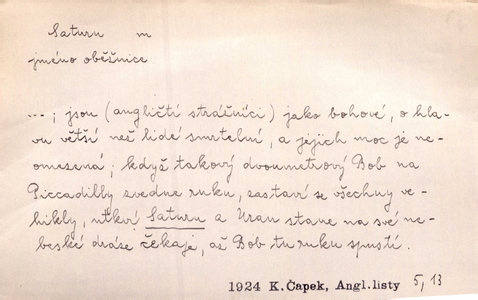 Saturn m
jméno oběžnice
...; jsou (angličtí strážníci) jako bohové, o hla-
vu větší než lidé smrtelní, a jejich moc je ne-
omezená; když takový dvoumetrový Bob na
Piccadilly zvedne ruku, zastaví se všechny ve-
hikly, utkví Saturn a Uran stane na své ne-
beské dráze čekaje, až Bob tu ruku spustí.
1924 K.Čapek, Angl.listy 5, 13